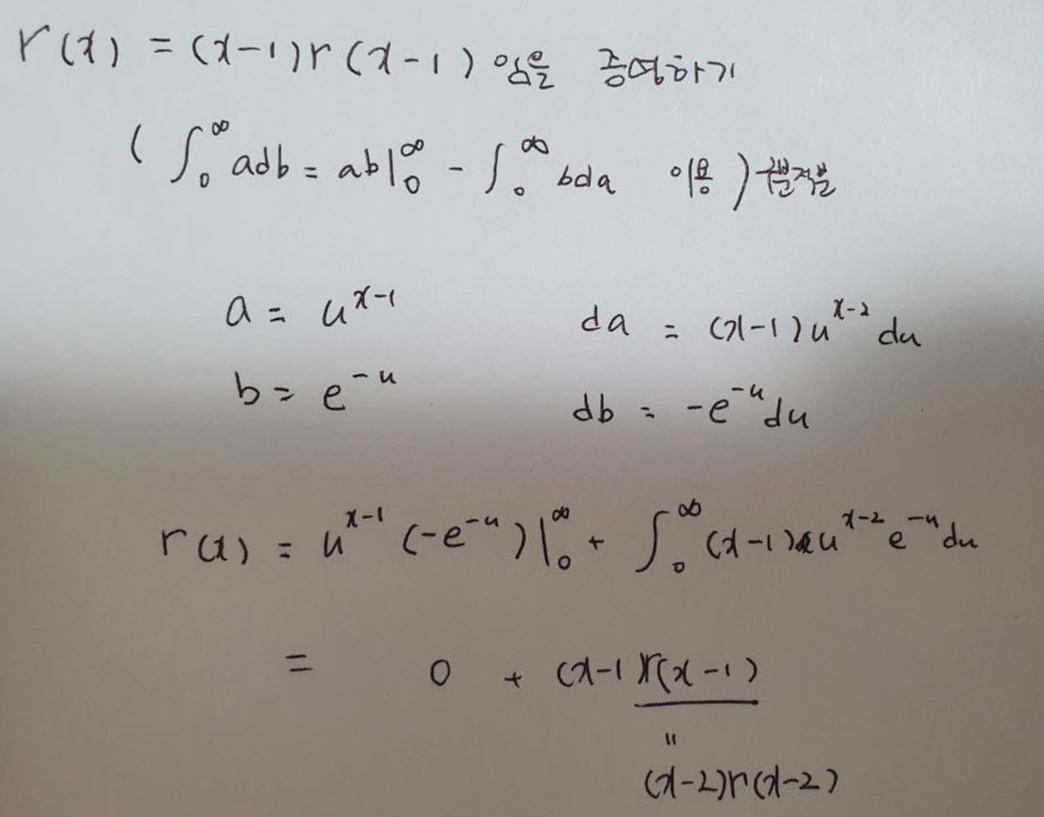 r(x) = (x-1)r(x-1) 임을 증명하기
( ∫₀^∞ adb = ab|₀^∞ - ∫₀^∞ bda 이용 )
a = u^{x-1} da = (x-1)u^{x-2}du
b = e^{-u} db = -e^{-u}du
r(x) = u^{x-1}(-e^{-u})|₀^∞ + ∫₀^∞ (x-1)u^{x-2}e^{-u}du
= 0 + (x-1)r(x-1)
"
(x-2)r(x-2)